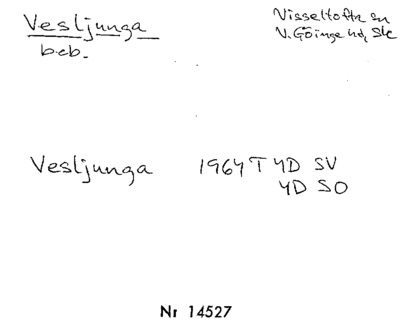 Vesljunga
beb.
Visseltofta sn
V. Göinge hd, Sk
Vesljunga 1964 T 4D SV
4D SO
Nr 14527